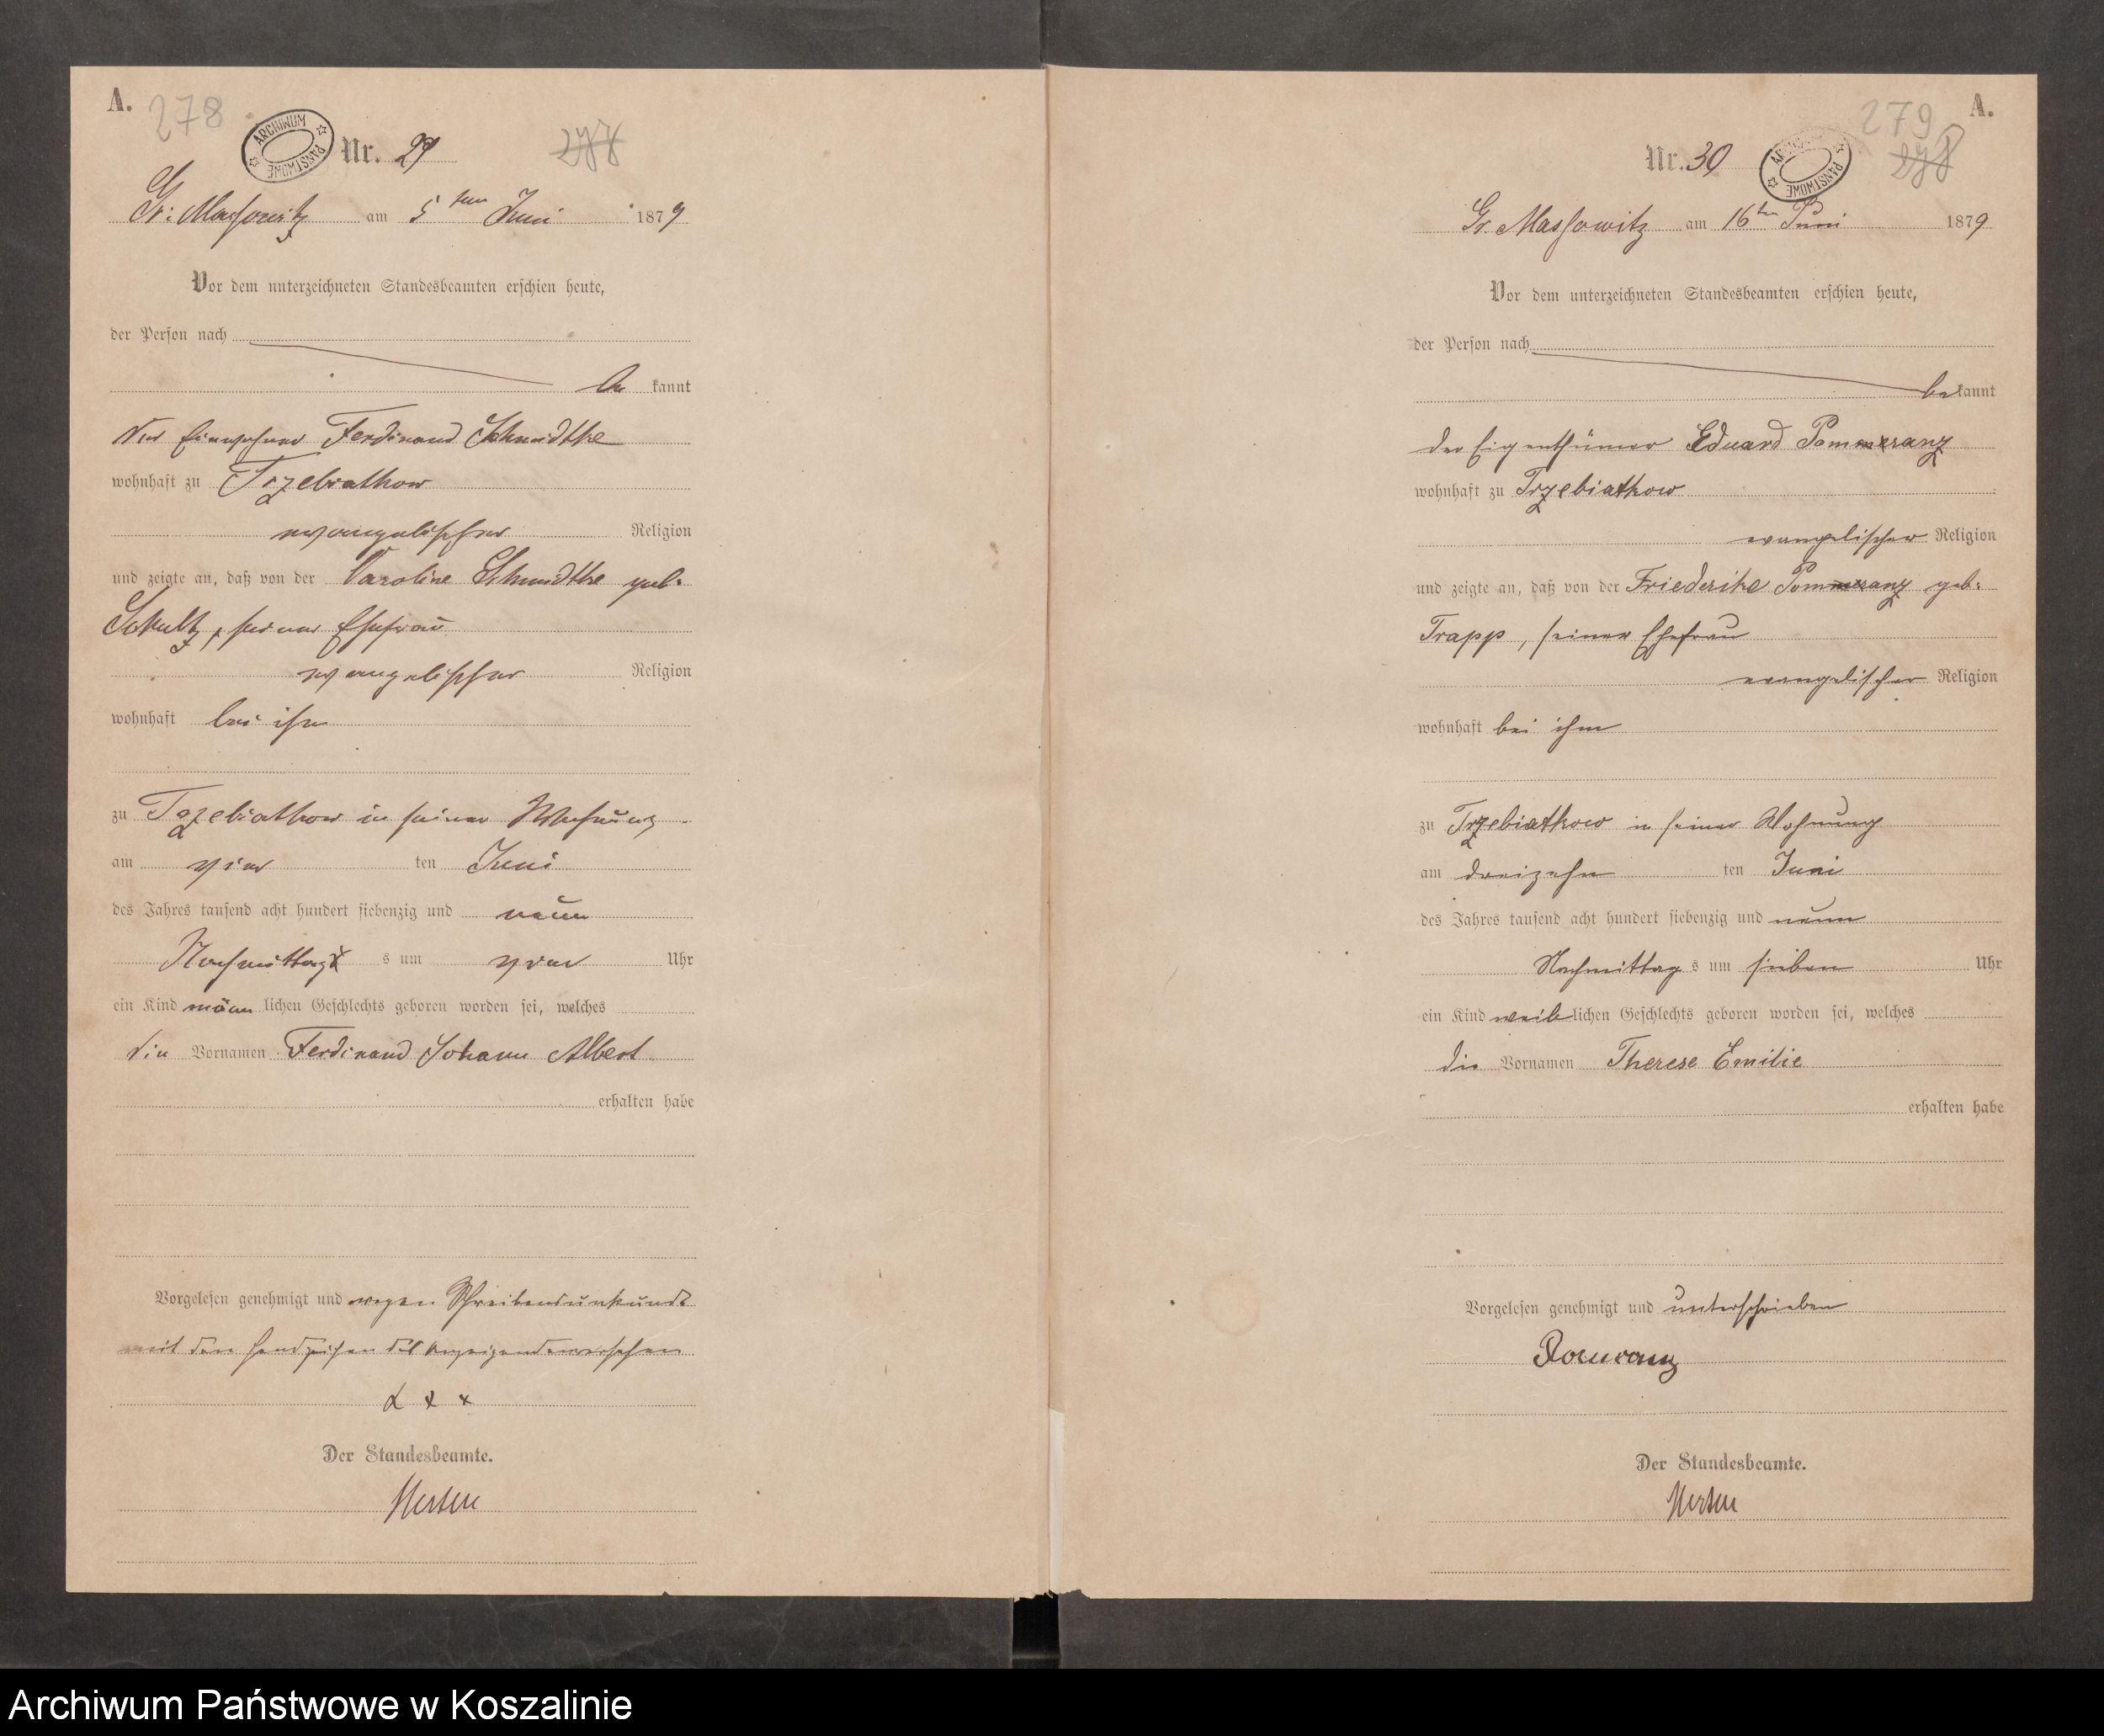 A.
278
ARCHIWUM PAŃSTWOWE
Nr. 29
Gr: Massowitz am 5ten Juni 1879
Vor dem unterzeichneten Standesbeamten erschien heute,
der Person nach
be kannt
der Einwohner Ferdinand Schmidtke
wohnhaft zu Trzebiatkow
evangelischer Religion
und zeigte an, daß von der Caroline Schmidtke geb:
Schultz, seiner Ehefrau
evangelischer Religion
wohnhaft bei ihm
zu Trzebiatkow in seiner Wohnung
am vier ten Juni
des Jahres tausend acht hundert siebenzig und neun
Nachmittag s um vier Uhr
ein Kind männ lichen Geschlechts geboren worden sei, welches
die Vornamen Ferdinand Johann Albert
erhalten habe
Vorgelesen genehmigt und wegen Schreibensunkunde
mit den Handzeichen des Anzeigenden versehen
x x x
Der Standesbeamte.
A.
279
ARCHIWUM PAŃSTWOWE
Nr. 30
Gr. Massowitz am 16ten Juni 1879
Vor dem unterzeichneten Standesbeamten erschien heute,
der Person nach
be kannt
der Eigenthümer Eduard Pommeranz
wohnhaft zu Trzebiatkow
evangelischer Religion
und zeigte an, daß von der Friederike Pommeranz geb:
Trapp, seiner Ehefrau
evangelischer Religion
wohnhaft bei ihm
zu Trzebiatkow in seiner Wohnung
am dreizehn ten Juni
des Jahres tausend acht hundert siebenzig und neun
Nachmittag s um sieben Uhr
ein Kind weib lichen Geschlechts geboren worden sei, welches
die Vornamen Therese Emilie
erhalten habe
Vorgelesen genehmigt und unterschrieben
Der Standesbeamte.
Archiwum Państwowe w Koszalinie